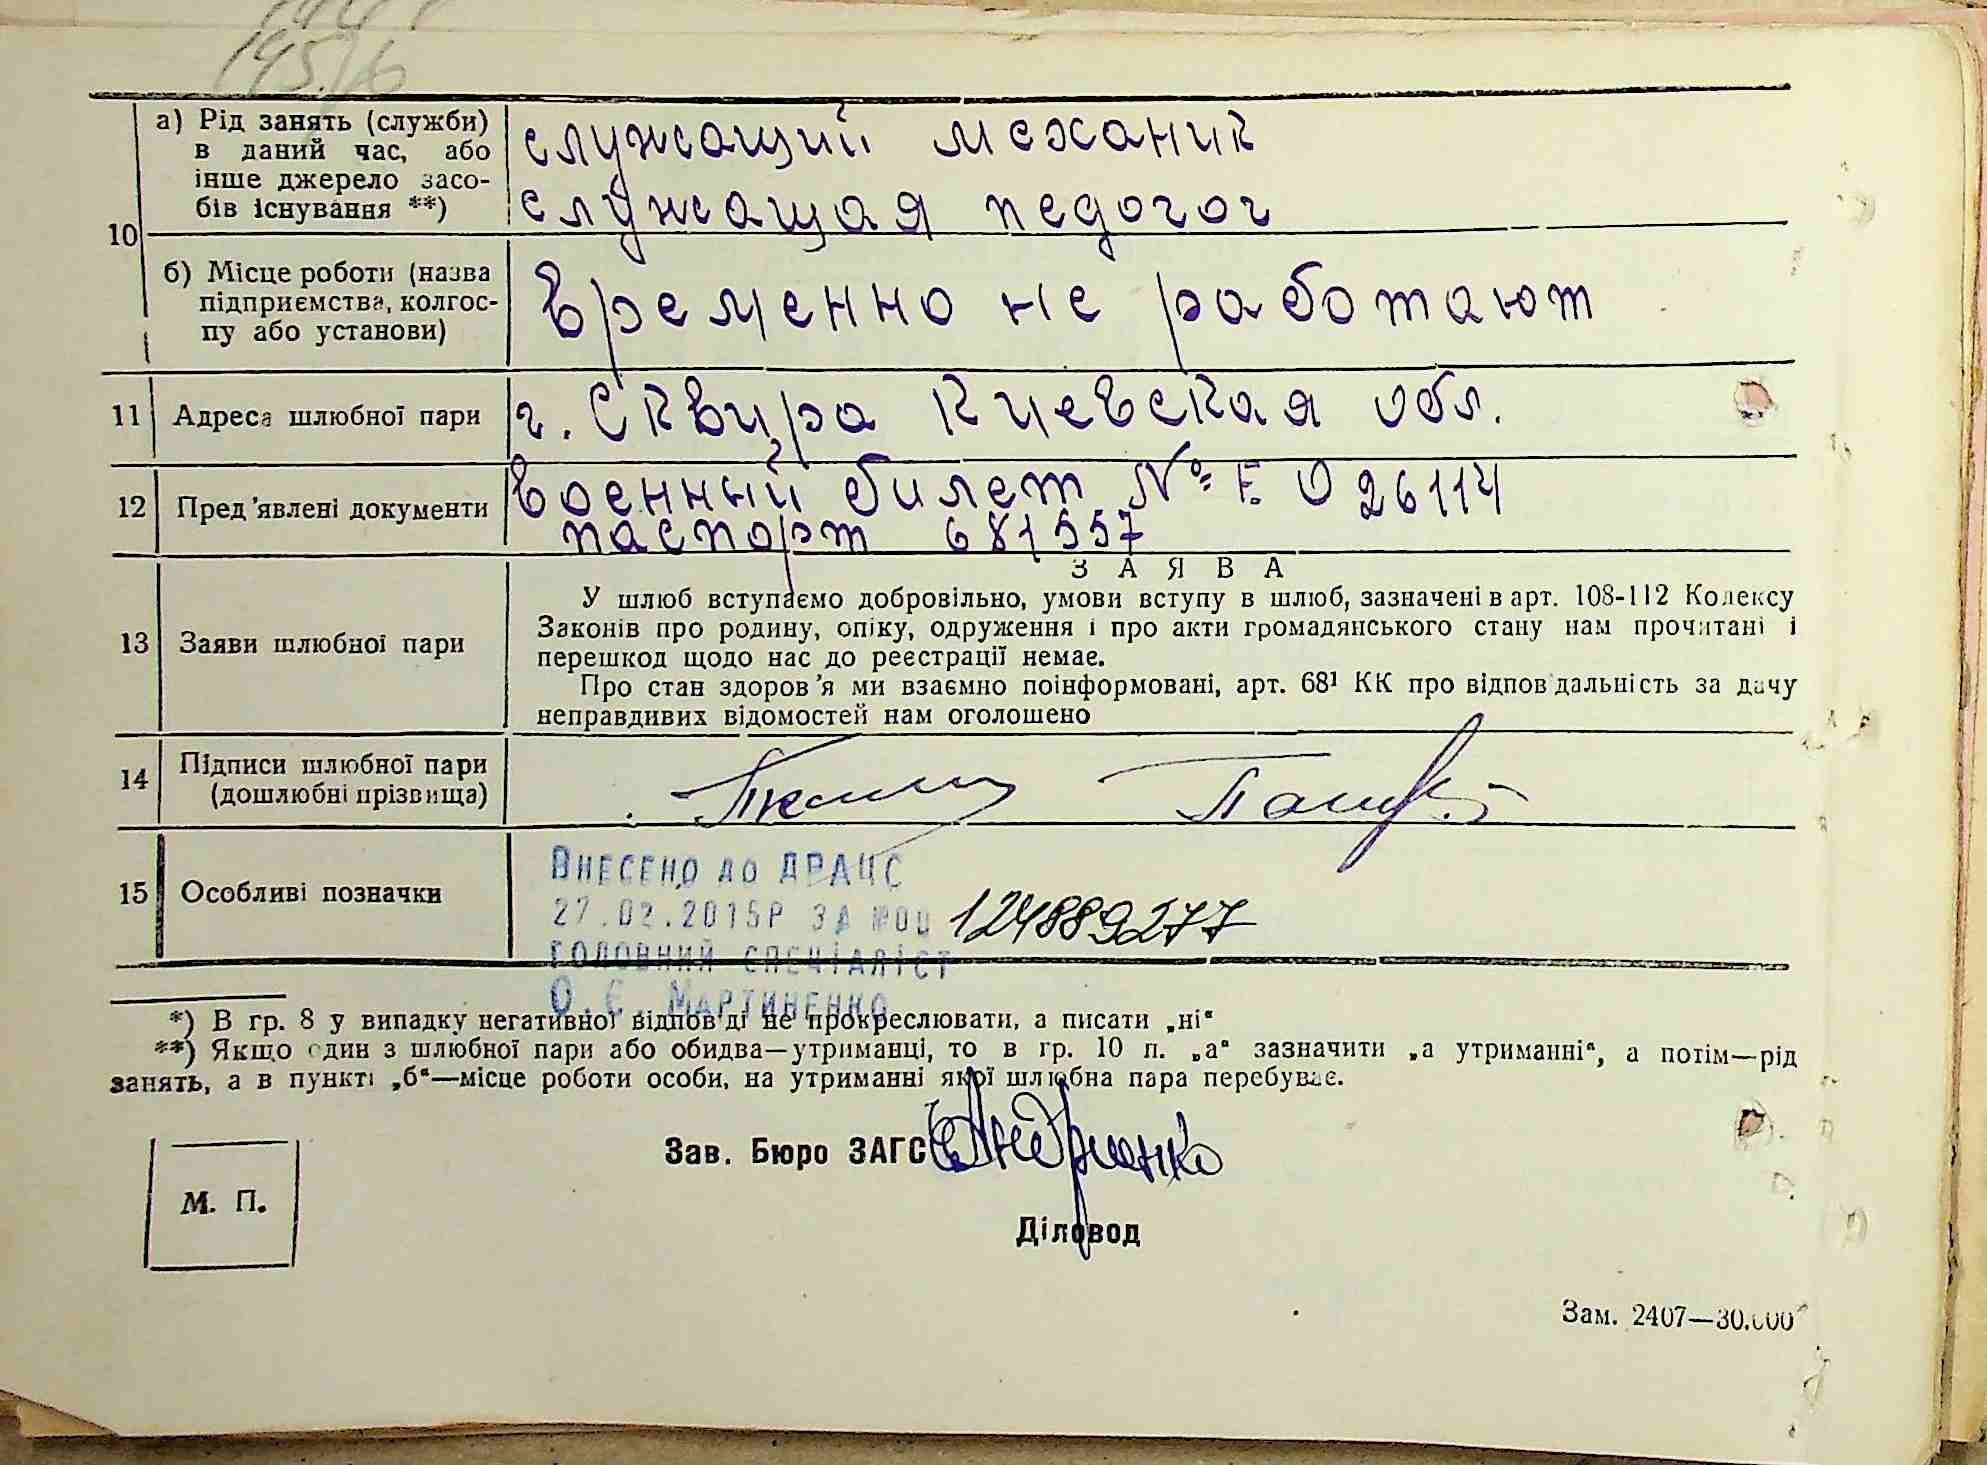 195/6
10
а) Рід занять (служби)
в даний час, або
інше джерело засо-
бів існування **)
служащий механик
служащая педогог
б) Місце роботи (назва
підприємства, колгос-
пу або установи)
временно не работают
11 Адреса шлюбної пари
г. Сквира Киевская обл.
12 Пред'явлені документи
военный билет № Е 026114
паспорт 681557
ЗАЯВА
13 Заяви шлюбної пари
У шлюб вступаємо добровільно, умови вступу в шлюб, зазначені в арт. 108-112 Кодексу
Законів про родину, опіку, одруження і про акти громадянського стану нам прочитані і
перешкод щодо нас до реєстрації немає.
Про стан здоров'я ми взаємно поінформовані, арт. 68¹ КК про відповідальність за дачу
неправдивих відомостей нам оголошено
14 Підписи шлюбної пари
(дошлюбні прізвища)
15 Особливі позначки
ВНЕСЕНО ДО ДРАЦС
27.02.2015Р ЗА №00 124889277
ГОЛОВНИЙ СПЕЦІАЛІСТ
О.Є. МАРТИНЕНКО
*) В гр. 8 у випадку негативної відповіді не прокреслювати, а писати „ні“
**) Якщо один з шлюбної пари або обидва—утриманці, то в гр. 10 п. „а“ зазначити „а утриманні“, а потім—рід
занять, а в пункті „б“—місце роботи особи, на утриманні якої шлюбна пара перебуває.
Зав. Бюро ЗАГС
М. П.
Діловод
Зам. 2407—30.000